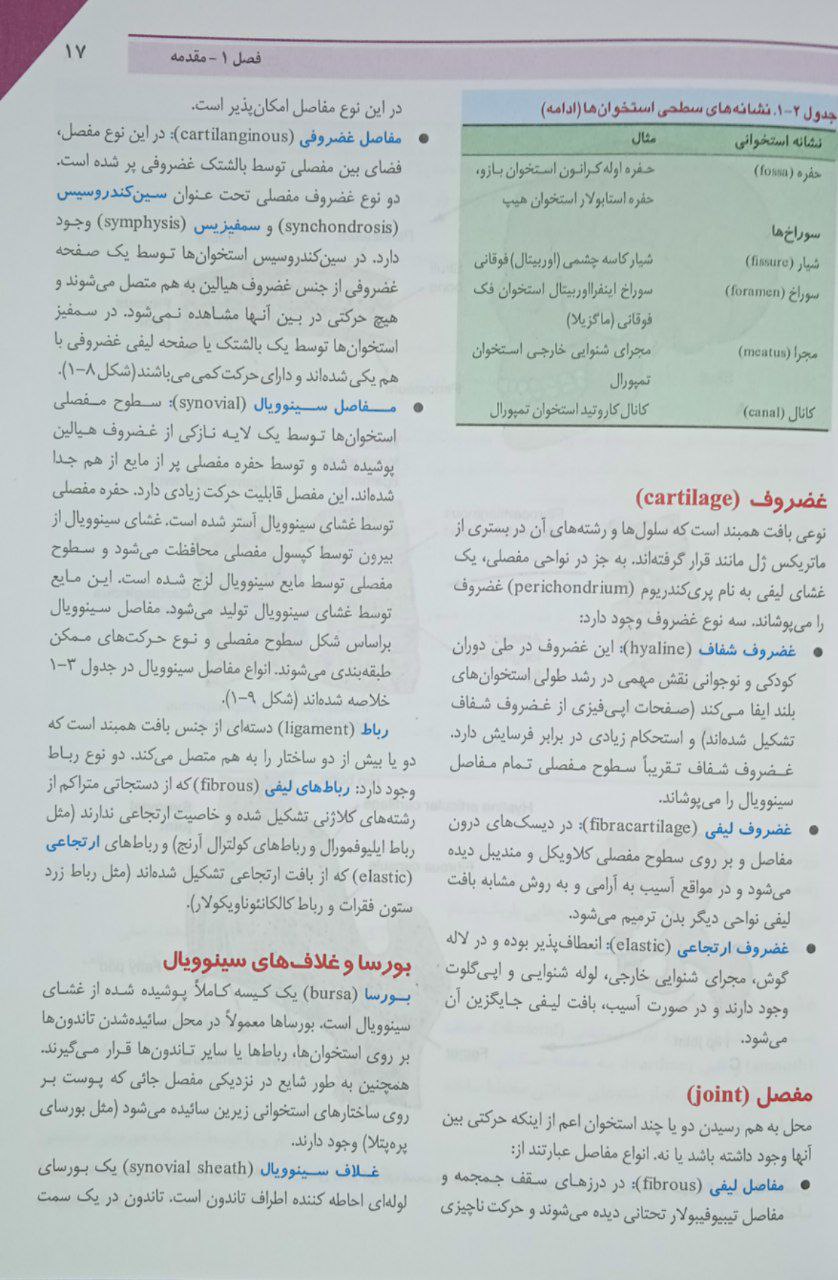 فصل ۱ - مقدمه
۱۷
جدول ۲-۱. نشانه‌های سطحی استخوان‌ها (ادامه)
نشانه استخوانی مثال
حفره (fossa) حفره اوله کرانون استخوان بازو،
حفره استابولار استخوان هیپ
سوراخ‌ها
شیار (fissure) شیار کاسه چشمی (اوربیتال) فوقانی
سوراخ (foramen) سوراخ اینفرااوربیتال استخوان فک
فوقانی (ماگزیلا)
مجرا (meatus) مجرای شنوایی خارجی استخوان
تمپورال
کانال (canal) کانال کاروتید استخوان تمپورال
غضروف (cartilage)
نوعی بافت همبند است که سلول‌ها و رشته‌های آن در بستری از
ماتریکس ژل مانند قرار گرفته‌اند. به جز در نواحی مفصلی، یک
غشای لیفی به نام پری‌کندریوم (perichondrium) غضروف
را می‌پوشاند. سه نوع غضروف وجود دارد:
● غضروف شفاف (hyaline): این غضروف در طی دوران
کودکی و نوجوانی نقش مهمی در رشد طولی استخوان‌های
بلند ایفا می‌کند (صفحات اپی‌فیزی از غضروف شفاف
تشکیل شده‌اند) و استحکام زیادی در برابر فرسایش دارد.
غضروف شفاف تقریباً سطوح مفصلی تمام مفاصل
سینوویال را می‌پوشاند.
● غضروف لیفی (fibracartilage): در دیسک‌های درون
مفاصل و بر روی سطوح مفصلی کلاویکل و مندیبل دیده
می‌شود و در مواقع آسیب به آرامی و به روش مشابه بافت
لیفی نواحی دیگر بدن ترمیم می‌شود.
● غضروف ارتجاعی (elastic): انعطاف‌پذیر بوده و در لاله
گوش، مجرای شنوایی خارجی، لوله شنوایی و اپی‌گلوت
وجود دارند و در صورت آسیب، بافت لیفی جایگزین آن
می‌شود.
مفصل (joint)
محل به هم رسیدن دو یا چند استخوان اعم از اینکه حرکتی بین
آنها وجود داشته باشد یا نه. انواع مفاصل عبارتند از:
● مفاصل لیفی (fibrous): در درزهای سقف جمجمه و
مفاصل تیبیوفیبولار تحتانی دیده می‌شوند و حرکت ناچیزی
در این نوع مفاصل امکان‌پذیر است.
● مفاصل غضروفی (cartilanginous): در این نوع مفصل،
فضای بین مفصلی توسط بالشتک غضروفی پر شده است.
دو نوع غضروف مفصلی تحت عنوان سین‌کندروسیس
(synchondrosis) و سمفیزیس (symphysis) وجود
دارد. در سین‌کندروسیس استخوان‌ها توسط یک صفحه
غضروفی از جنس غضروف هیالین به هم متصل می‌شوند و
هیچ حرکتی در بین آنها مشاهده نمی‌شود. در سمفیز
استخوان‌ها توسط یک بالشتک یا صفحه لیفی غضروفی با
هم یکی شده‌اند و دارای حرکت کمی می‌باشند (شکل ۸-۱).
● مفاصل سینوویال (synovial): سطوح مفصلی
استخوان‌ها توسط یک لایه نازکی از غضروف هیالین
پوشیده شده و توسط حفره مفصلی پر از مایع از هم جدا
شده‌اند. این مفصل قابلیت حرکت زیادی دارد. حفره مفصلی
توسط غشای سینوویال آستر شده است. غشای سینوویال از
بیرون توسط کپسول مفصلی محافظت می‌شود و سطوح
مفصلی توسط مایع سینوویال لزج شده است. این مایع
توسط غشای سینوویال تولید می‌شود. مفاصل سینوویال
براساس شکل سطوح مفصلی و نوع حرکت‌های ممکن
طبقه‌بندی می‌شوند. انواع مفاصل سینوویال در جدول ۳-۱
خلاصه شده‌اند (شکل ۹-۱).
رباط (ligament) دسته‌ای از جنس بافت همبند است که
دو یا بیش از دو ساختار را به هم متصل می‌کند. دو نوع رباط
وجود دارد: رباط‌های لیفی (fibrous) که از دستجاتی متراکم از
رشته‌های کلاژنی تشکیل شده و خاصیت ارتجاعی ندارند (مثل
رباط ایلیوفمورال و رباط‌های کولترال آرنج) و رباط‌های ارتجاعی
(elastic) که از بافت ارتجاعی تشکیل شده‌اند (مثل رباط زرد
ستون فقرات و رباط کالکانئوناویکولار).
بورسا و غلاف‌های سینوویال
بورسا (bursa) یک کیسه کاملاً پوشیده شده از غشای
سینوویال است. بورساها معمولاً در محل سائیده‌شدن تاندون‌ها
بر روی استخوان‌ها، رباط‌ها یا سایر تاندون‌ها قرار می‌گیرند.
همچنین به طور شایع در نزدیکی مفصل جائی که پوست بر
روی ساختارهای استخوانی زیرین سائیده می‌شود (مثل بورسای
پره‌پتلا) وجود دارند.
غلاف سینوویال (synovial sheath) یک بورسای
لوله‌ای احاطه کننده اطراف تاندون است. تاندون در یک سمت